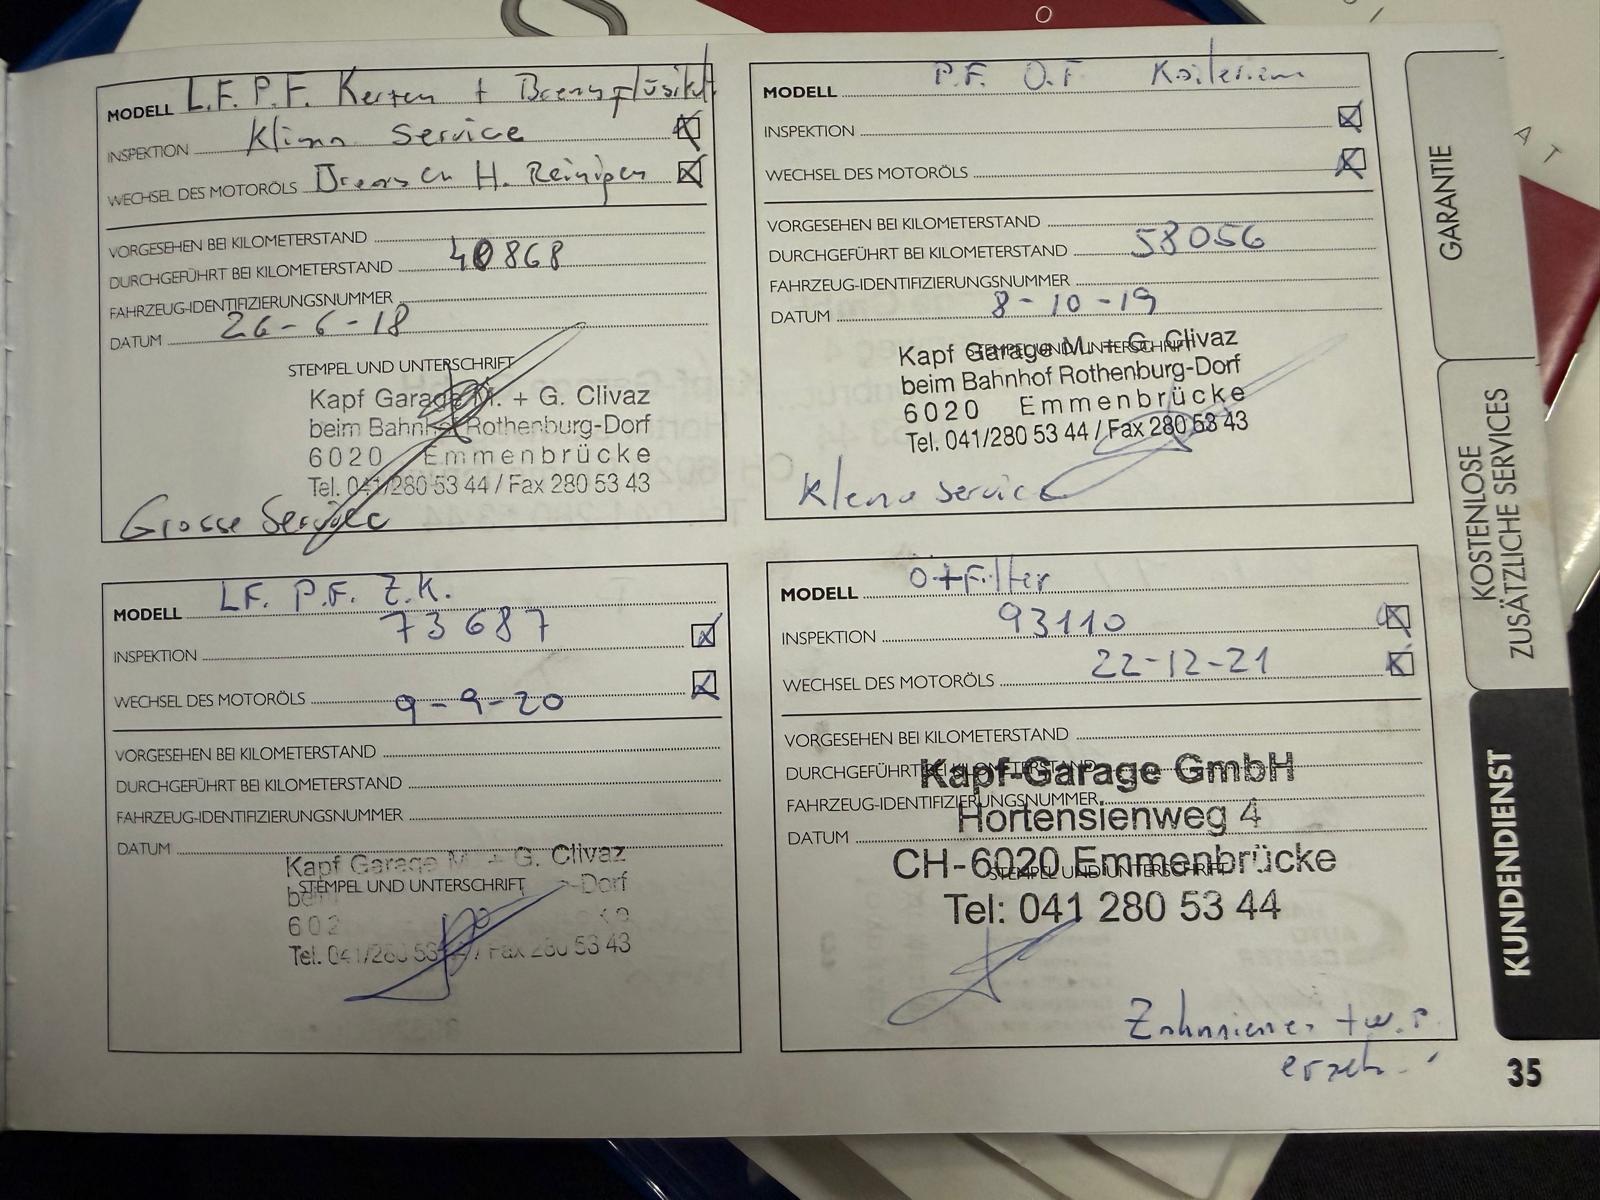 MODELL L.F. P.F. Kerzen + Bremsflüsikt
INSPEKTION Klima Service
WECHSEL DES MOTORÖLS Bremsen H. Reinigen
VORGESEHEN BEI KILOMETERSTAND
DURCHGEFÜHRT BEI KILOMETERSTAND 40868
FAHRZEUG-IDENTIFIZIERUNGSNUMMER
DATUM 26-6-18
STEMPEL UND UNTERSCHRIFT
Kapf Garage M. + G. Clivaz
beim Bahnhof Rothenburg-Dorf
6020 Emmenbrücke
Tel. 041/280 53 44 / Fax 280 53 43
Grosse Service
MODELL P.F. O.F
INSPEKTION
WECHSEL DES MOTORÖLS
VORGESEHEN BEI KILOMETERSTAND
DURCHGEFÜHRT BEI KILOMETERSTAND 58056
FAHRZEUG-IDENTIFIZIERUNGSNUMMER
DATUM 8-10-19
STEMPEL UND UNTERSCHRIFT
Kapf Garage M. + G. Clivaz
beim Bahnhof Rothenburg-Dorf
6020 Emmenbrücke
Tel. 041/280 53 44 / Fax 280 53 43
Kleine Service
MODELL LF. P.F. Z.K.
73687
INSPEKTION
WECHSEL DES MOTORÖLS 9-9-20
VORGESEHEN BEI KILOMETERSTAND
DURCHGEFÜHRT BEI KILOMETERSTAND
FAHRZEUG-IDENTIFIZIERUNGSNUMMER
DATUM
Kapf Garage M. + G. Clivaz
STEMPEL UND UNTERSCHRIFT
-Dorf
602
Tel. 041/280 53 44 / Fax 280 53 43
MODELL Ö+Filter
INSPEKTION 93110
WECHSEL DES MOTORÖLS 22-12-21
VORGESEHEN BEI KILOMETERSTAND
DURCHGEFÜHRT BEI KILOMETERSTAND
Kapf-Garage GmbH
FAHRZEUG-IDENTIFIZIERUNGSNUMMER
Hortensienweg 4
DATUM
CH-6020 Emmenbrücke
STEMPEL UND UNTERSCHRIFT
Tel: 041 280 53 44
Zahnriemen + w.p.
ersetz.
GARANTIE
KOSTENLOSE
ZUSÄTZLICHE SERVICES
KUNDENDIENST
35